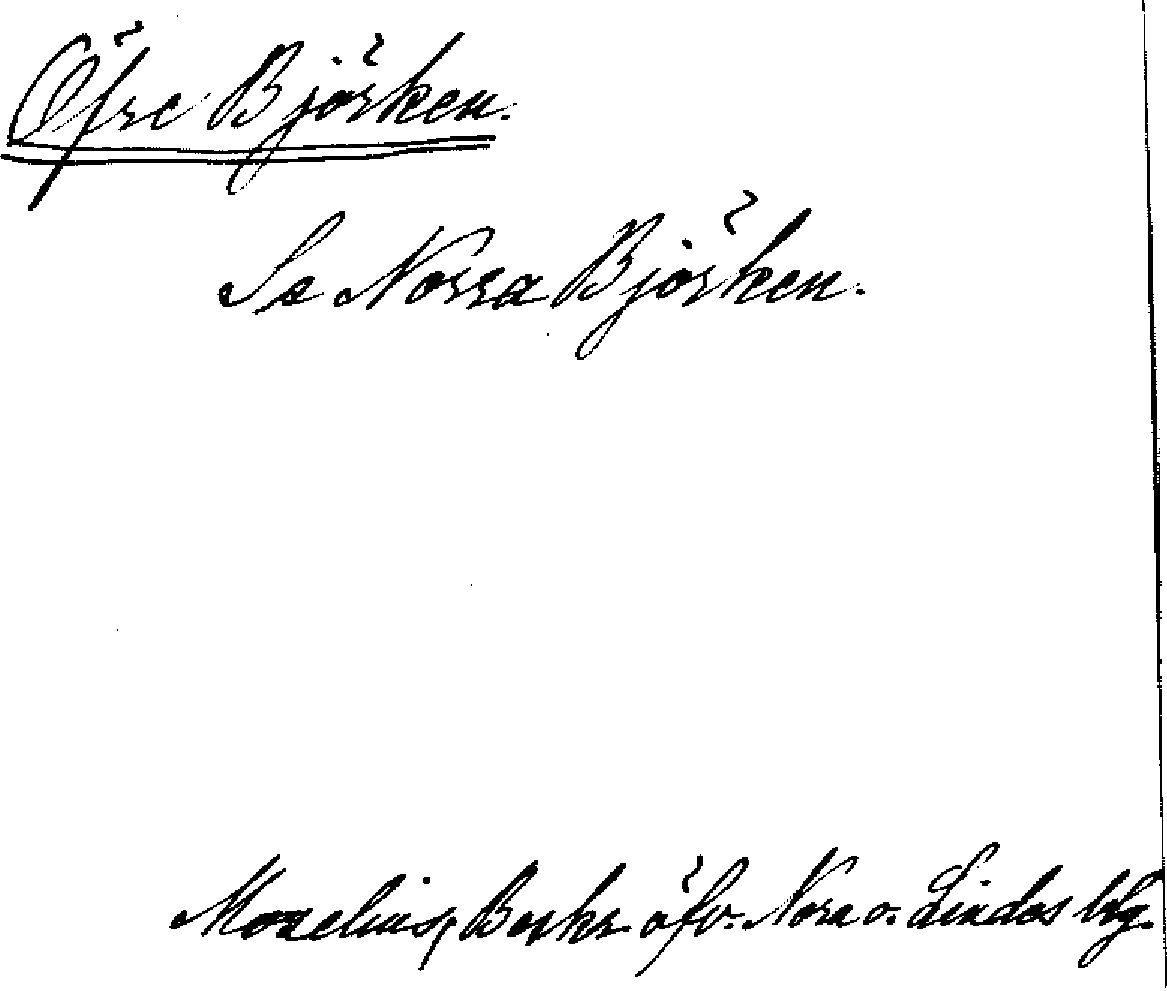 Öfre Björken.
Se Norra Björken.
Morelius, Beskr. öfv. Nora o. Lindes btg.